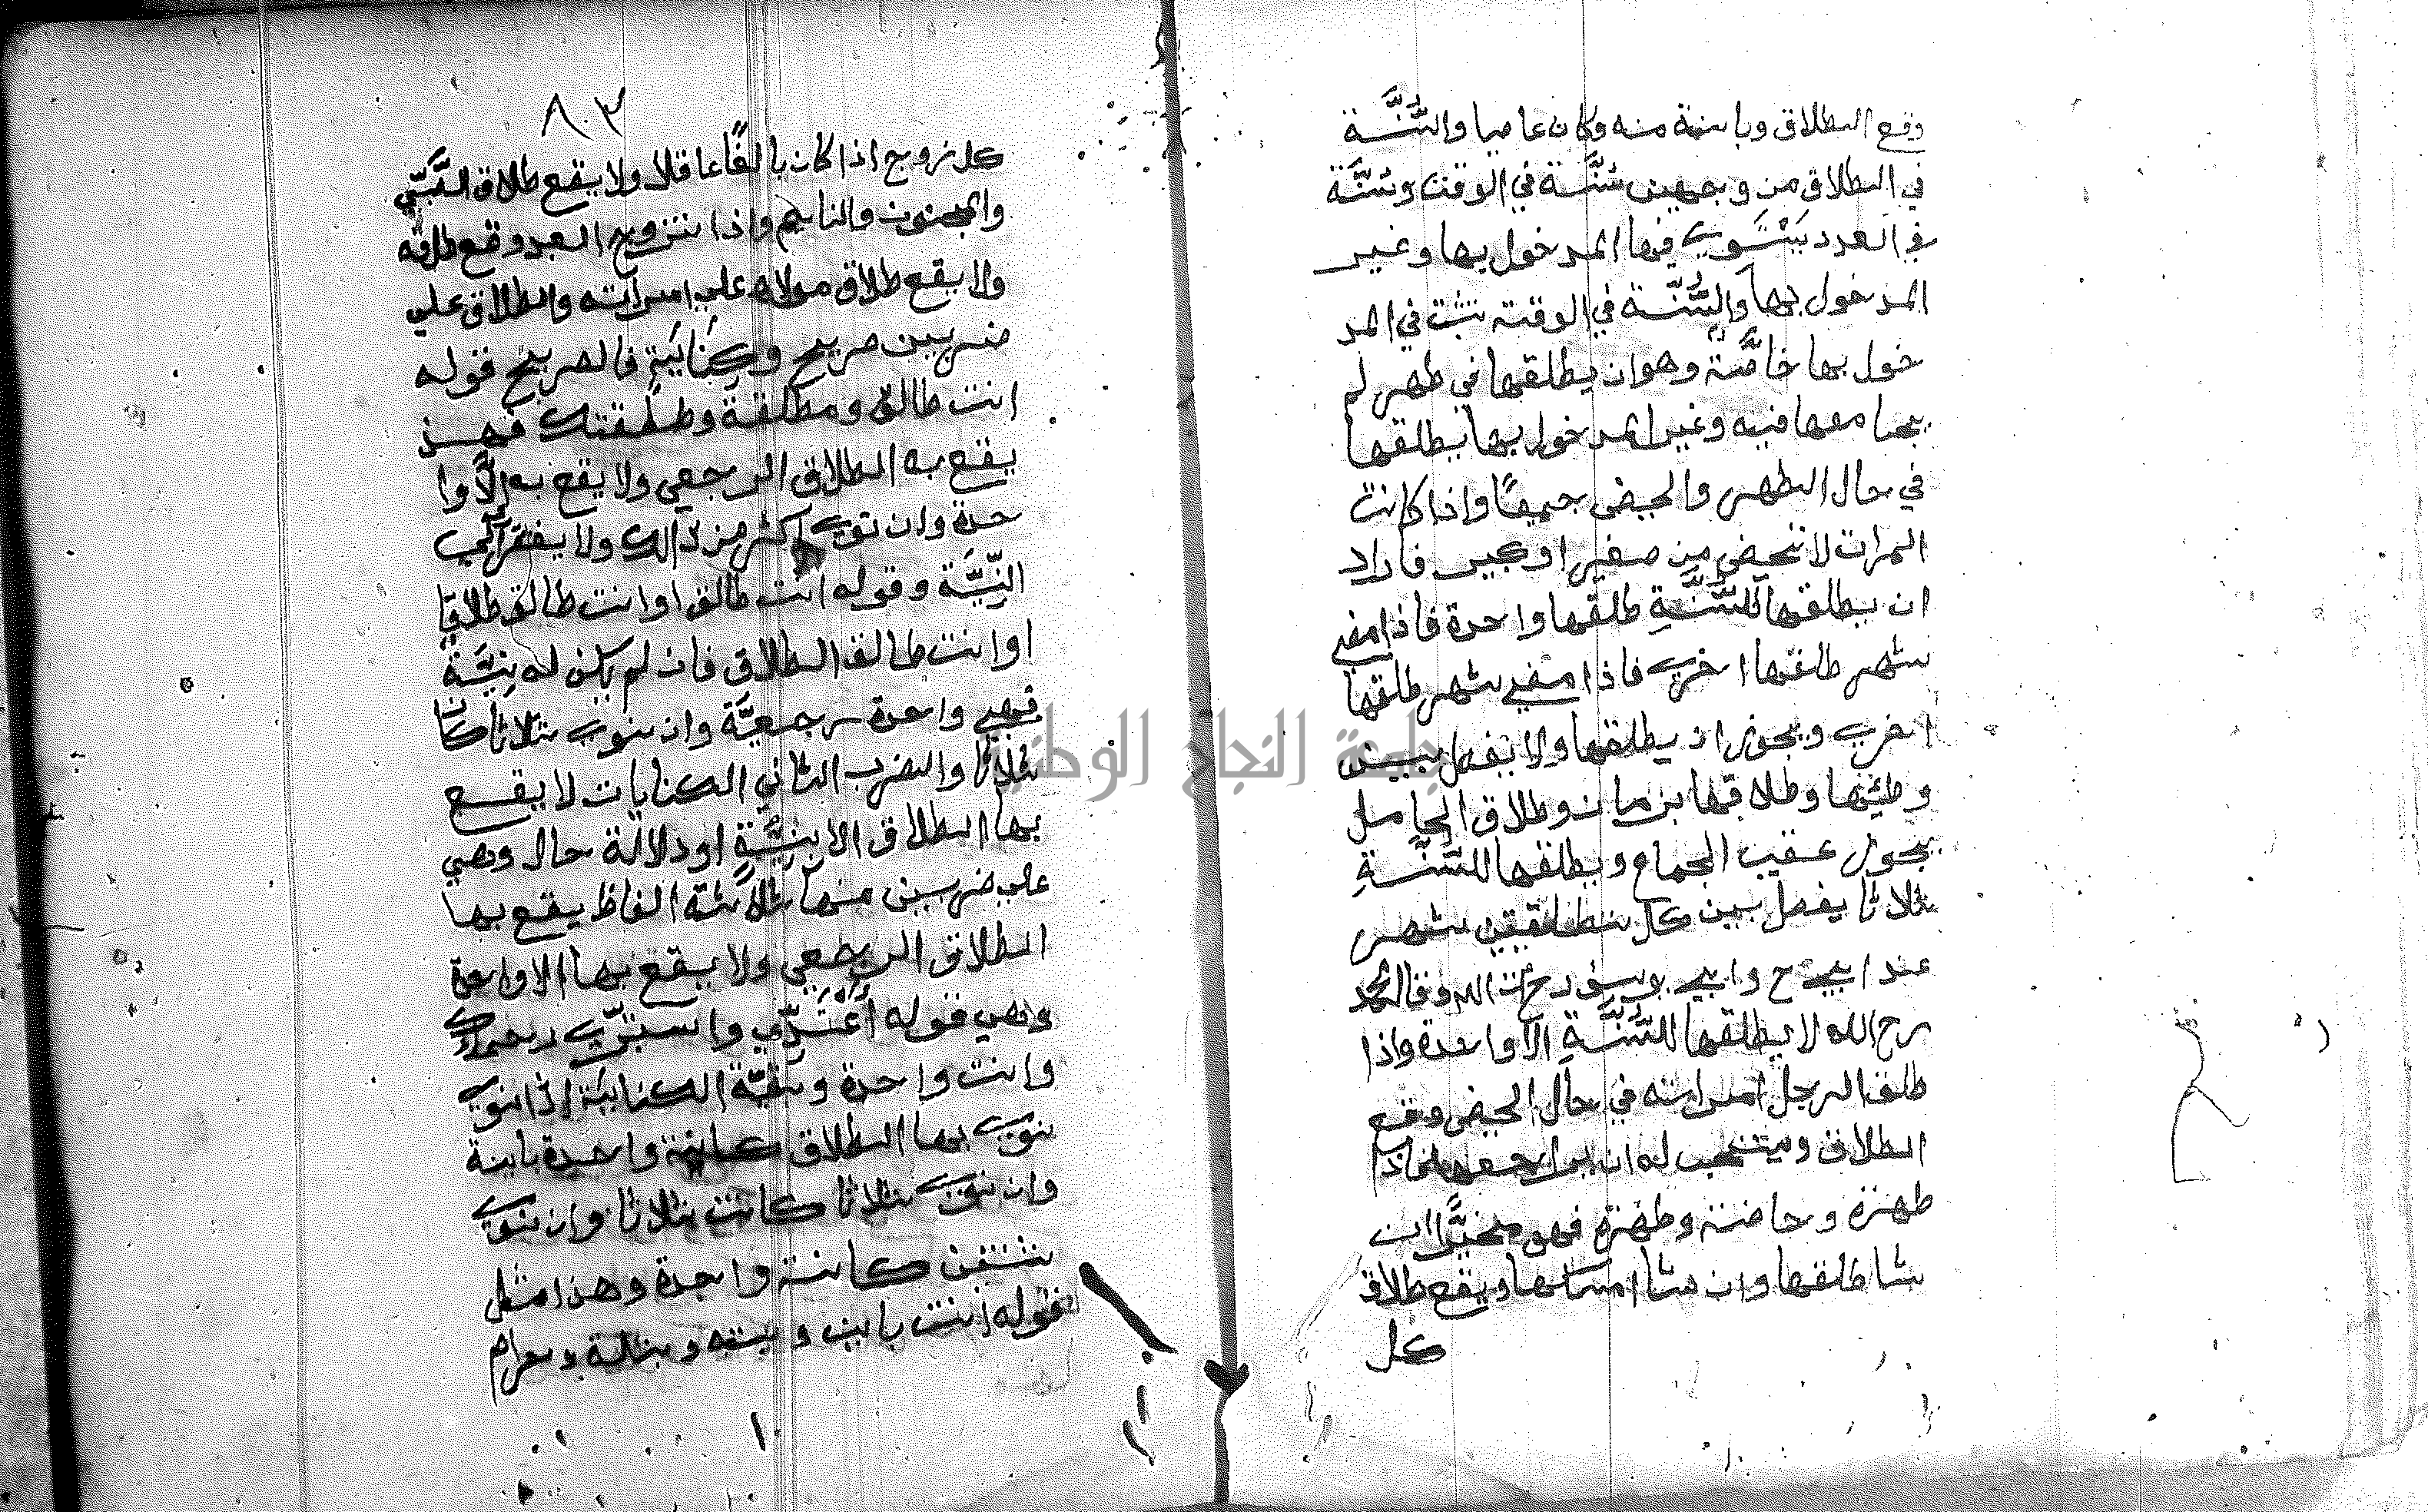 وقع الطلاق وباينة منه وكان عاصيا والسُّنَّة
في الطلاق من وجهين سُنَّة في الوقت وسُنَّة
في العدد يَسْتَوي فيها المدخول بها وغير
المدخول بها والسُّنَّة في الوقت تثبت في المد
خول بها خاصَّة وهو ان يطلقها في طهر لم
يجا معها فيه وغير المدخول بها يطلقها
في حال الطهر والحيض جميعًا واذا كانت
المرات لا تحيض من صغير او كبير فاراد
ان يطلقها للسُّنَّةِ طلقها واحدة فاذا مضى
شهر طلقها اخرى فاذا مضي شهر طلقها
اخرى ويجوز ان يطلقها ولا يفصل بين
وطئها وطلاقها بزمان وطلاق الحامل
يجول عقيب الجماع ويطلقها للسُّنَّةِ
ثلاثا يفصل بين كل تطليقتين شهر
عند ابي ح وابي يوسف رح الله وقال محمد
رح الله لا يطلقها للسُّنَّةِ الا واحدة واذا
طلق الرجل امراته في حال الحيض وقع
الطلاق ويستحب له ان يراجعها فاذا
طهرة وحاضت وطهرة فهو مخيَّر ان
شا طلقها وان شا امسكها ويقع طلاق
كل
٨٠٣
كل زوج اذا كان بالغًا عاقلا ولا يقع طلاق الصَّبّي
والمجنون والنايم واذا تزوج العبد وقع طلاقه
ولا يقع طلاق مولاه علي امراته والطلاق علي
ضربين صريح وكِنَايَةٍ فالصريح قوله
انت طالق ومطلقة وطلقتك فهذ
يقع به الطلاق الرجعي ولا يقع به إلَّا وا
حدة وان نوى اكثر من ذالك ولا يفتقر الي
النِّيَّة وقوله انت طالق او انت طالق طلاقا
او انت طالق الطلاق فان لم يكن له نِيَّة
فهي واحدة رجعيَّة وان نوى ثلاثا كان
ثلاثا والضرب الثاني الكنايات لا يقع
بها الطلاق الا بنِيَّةٍ او دلالة حال وهي
علي ضربين منها ثلاثة الفاظ يقع بها
الطلاق الرجعي ولا يقع بها الا واحدة
وهي قوله اعْتَدِّي واستبرّي رحمك
وانت واحدة وبقيّة الكناية إذا نوى
نوى بها الطلاق كانة واحدة باينة
وان نوى ثلاثا كانت ثلاثا وان نوى
ثنتين كانت واحدة وهذا مثل
قوله انت باين وبته وبتلة وحرام
جامعة النجاح الوطنية